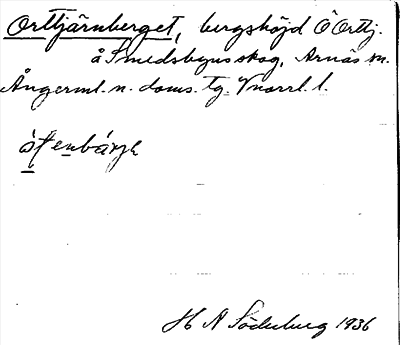 Orttjärnberget, bergshöjd Ö Orttj.
å Smedsbyns skog, Arnäs sn.
Ångerml. n. doms. tg. Vnorrl. l.
H A Söderberg 1936